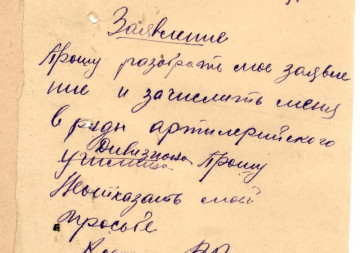 Заявление
Прошу разобрать мое заявле
ние и зачислить меня
в ряды артилерийского
дивизиона Прошу
Неотказать моей
просьбе